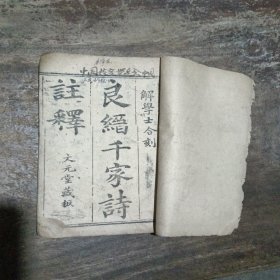 解學士合刻
良縉千家詩
註釋
大元堂藏板